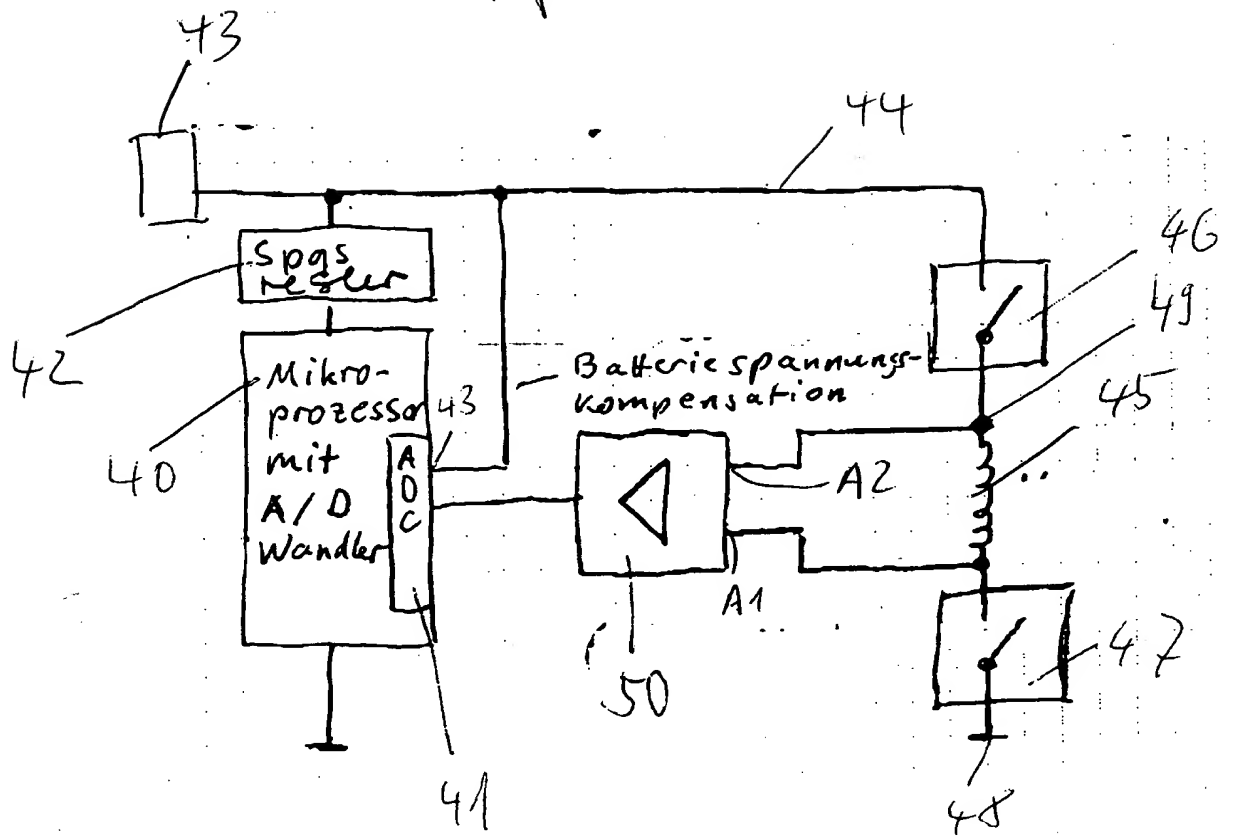 43
44
46
Spgs
regler
49
42
Mikro-
prozessor
mit
A/D
Wandler
43
Batteriespannungs-
kompensation
45
40
A
D
C
A2
A1
47
50
41
48